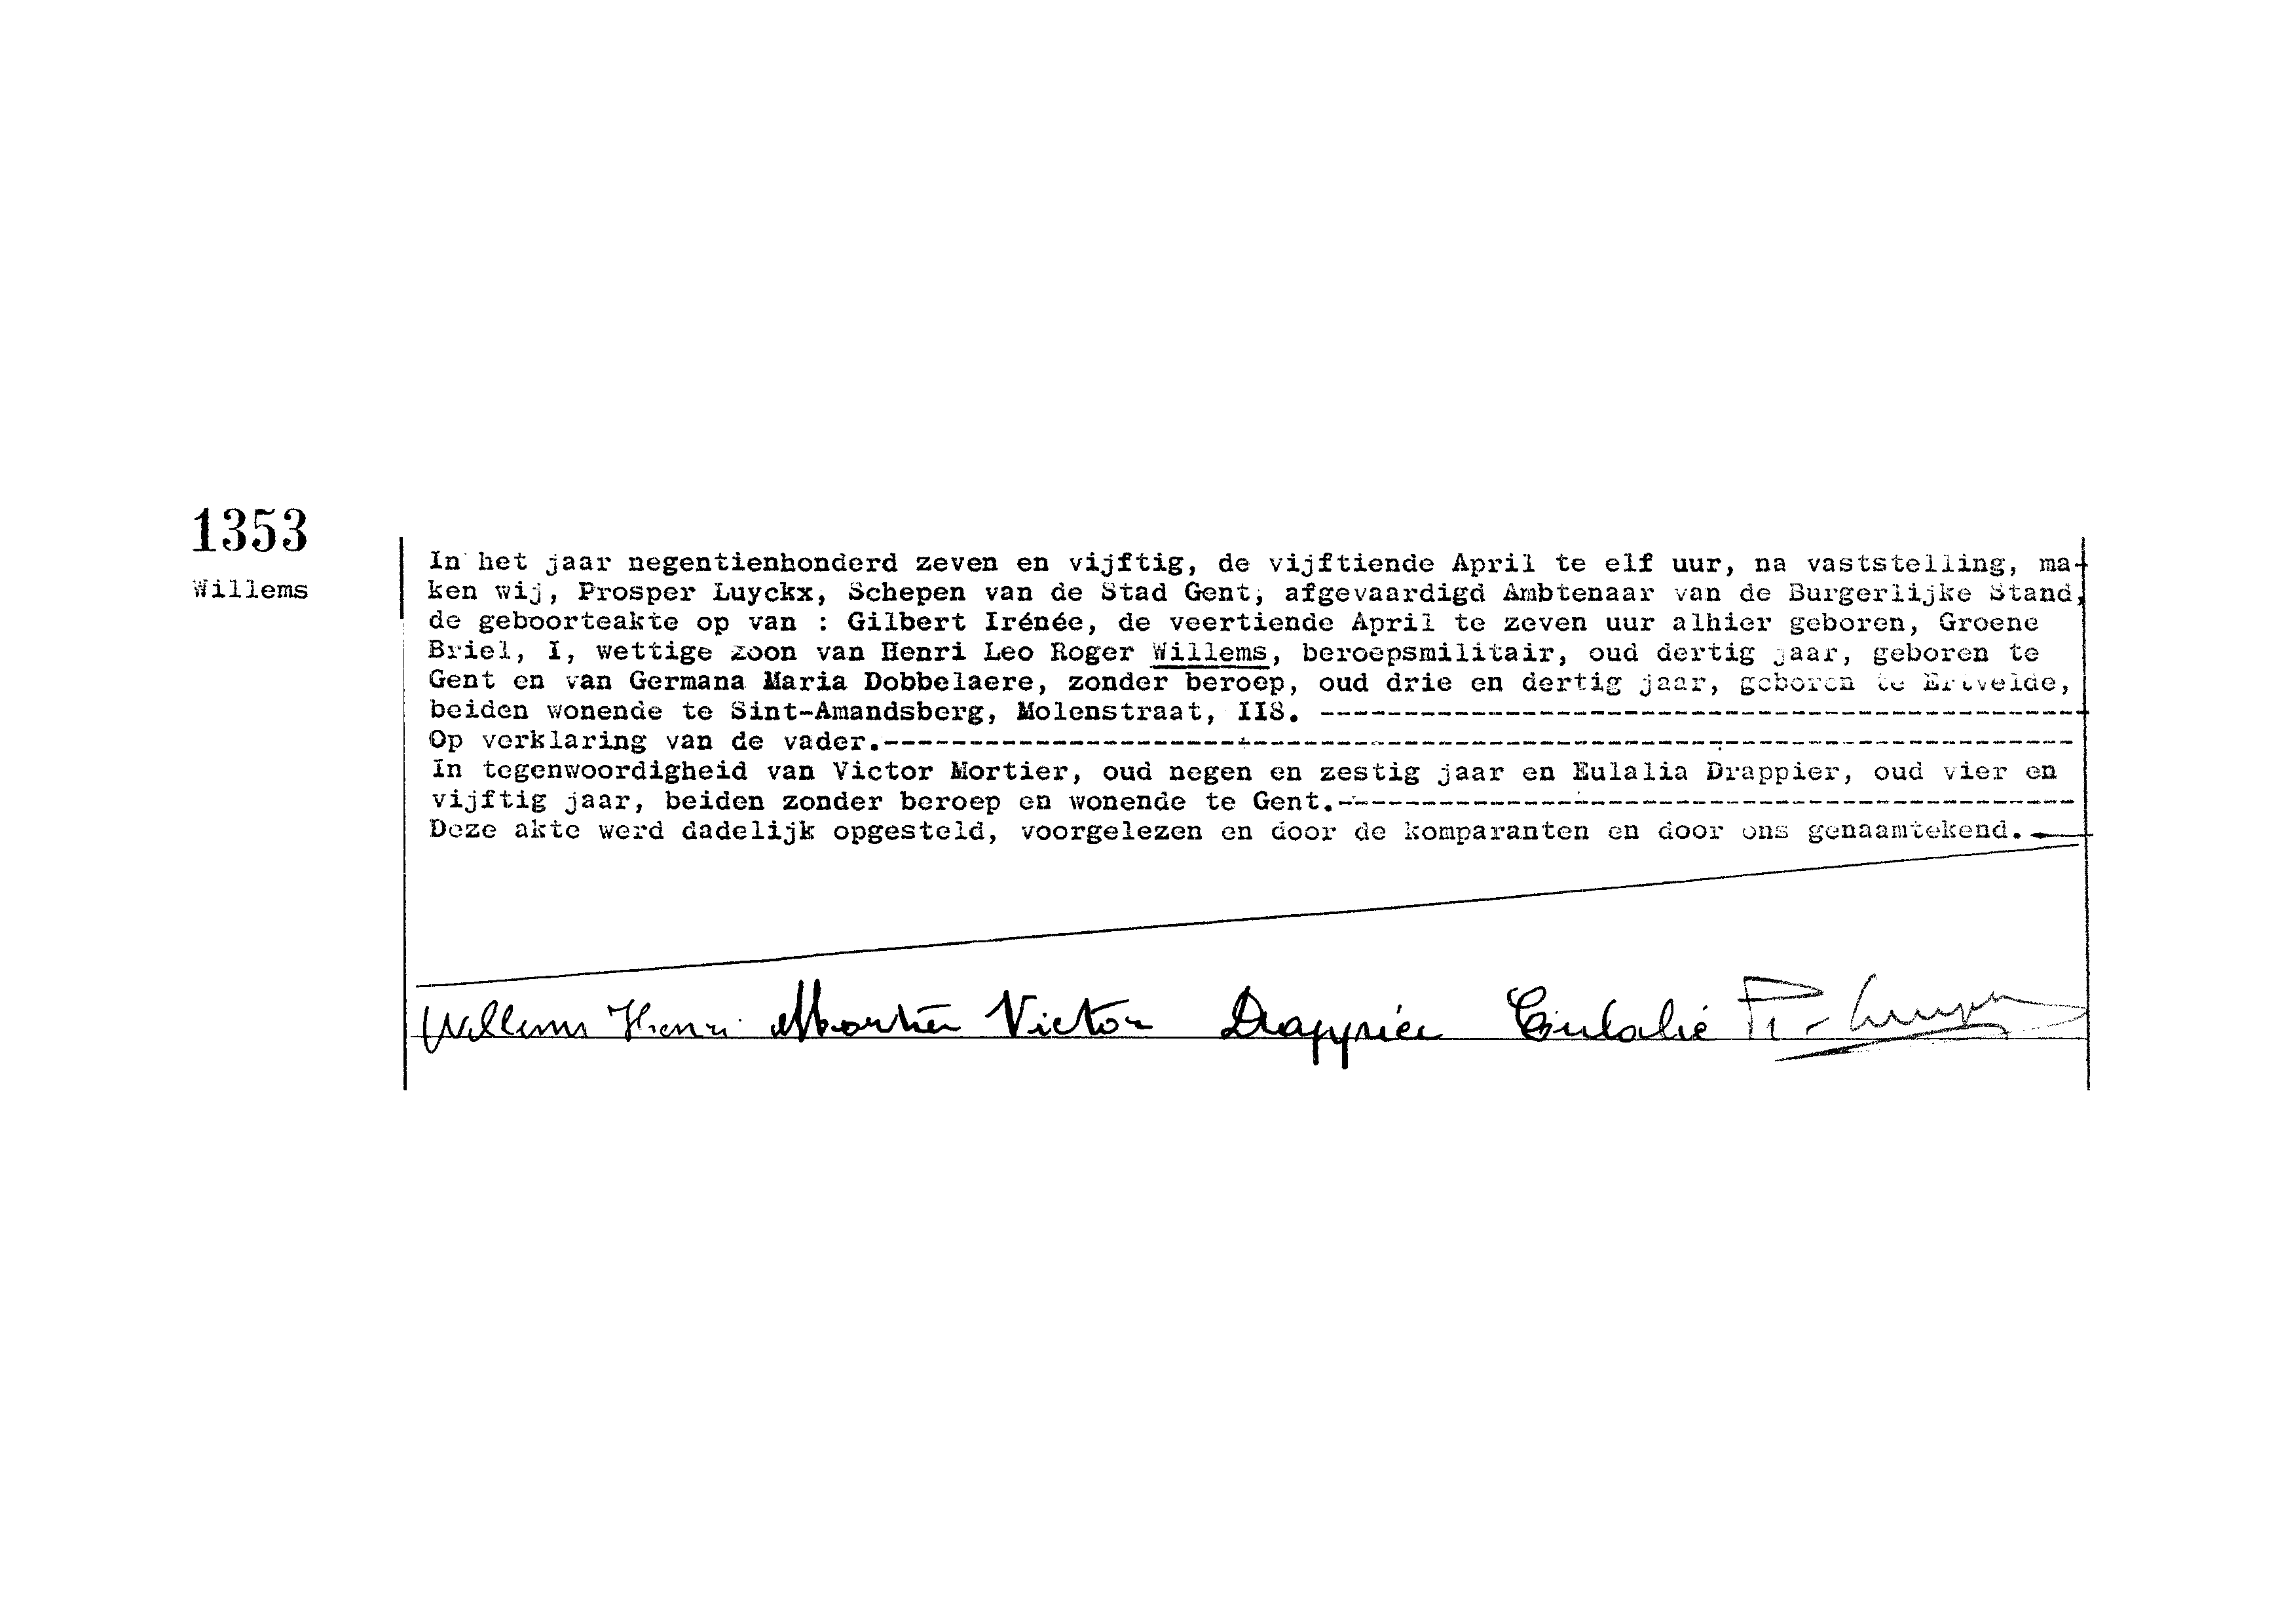 1353
Willems
In het jaar negentienhonderd zeven en vijftig, de vijftiende April te elf uur, na vaststelling, ma-
ken wij, Prosper Luyckx, Schepen van de Stad Gent, afgevaardigd Ambtenaar van de Burgerlijke Stand,
de geboorteakte op van : Gilbert Irénée, de veertiende April te zeven uur alhier geboren, Groene
Briel, I, wettige zoon van Henri Leo Roger Willems, beroepsmilitair, oud dertig jaar, geboren te
Gent en van Germana Maria Dobbelaere, zonder beroep, oud drie en dertig jaar, geboren te Ertvelde,
beiden wonende te Sint-Amandsberg, Molenstraat, II8. ---------------------------------------------
Op verklaring van de vader.-----------------------------------------------------------------------
In tegenwoordigheid van Victor Mortier, oud negen en zestig jaar en Eulalia Drappier, oud vier en
vijftig jaar, beiden zonder beroep en wonende te Gent.--------------------------------------------
Deze akte werd dadelijk opgesteld, voorgelezen en door de komparanten en door ons genaamtekend.
Willems Henri Mortier Victor Drappier Eulalie